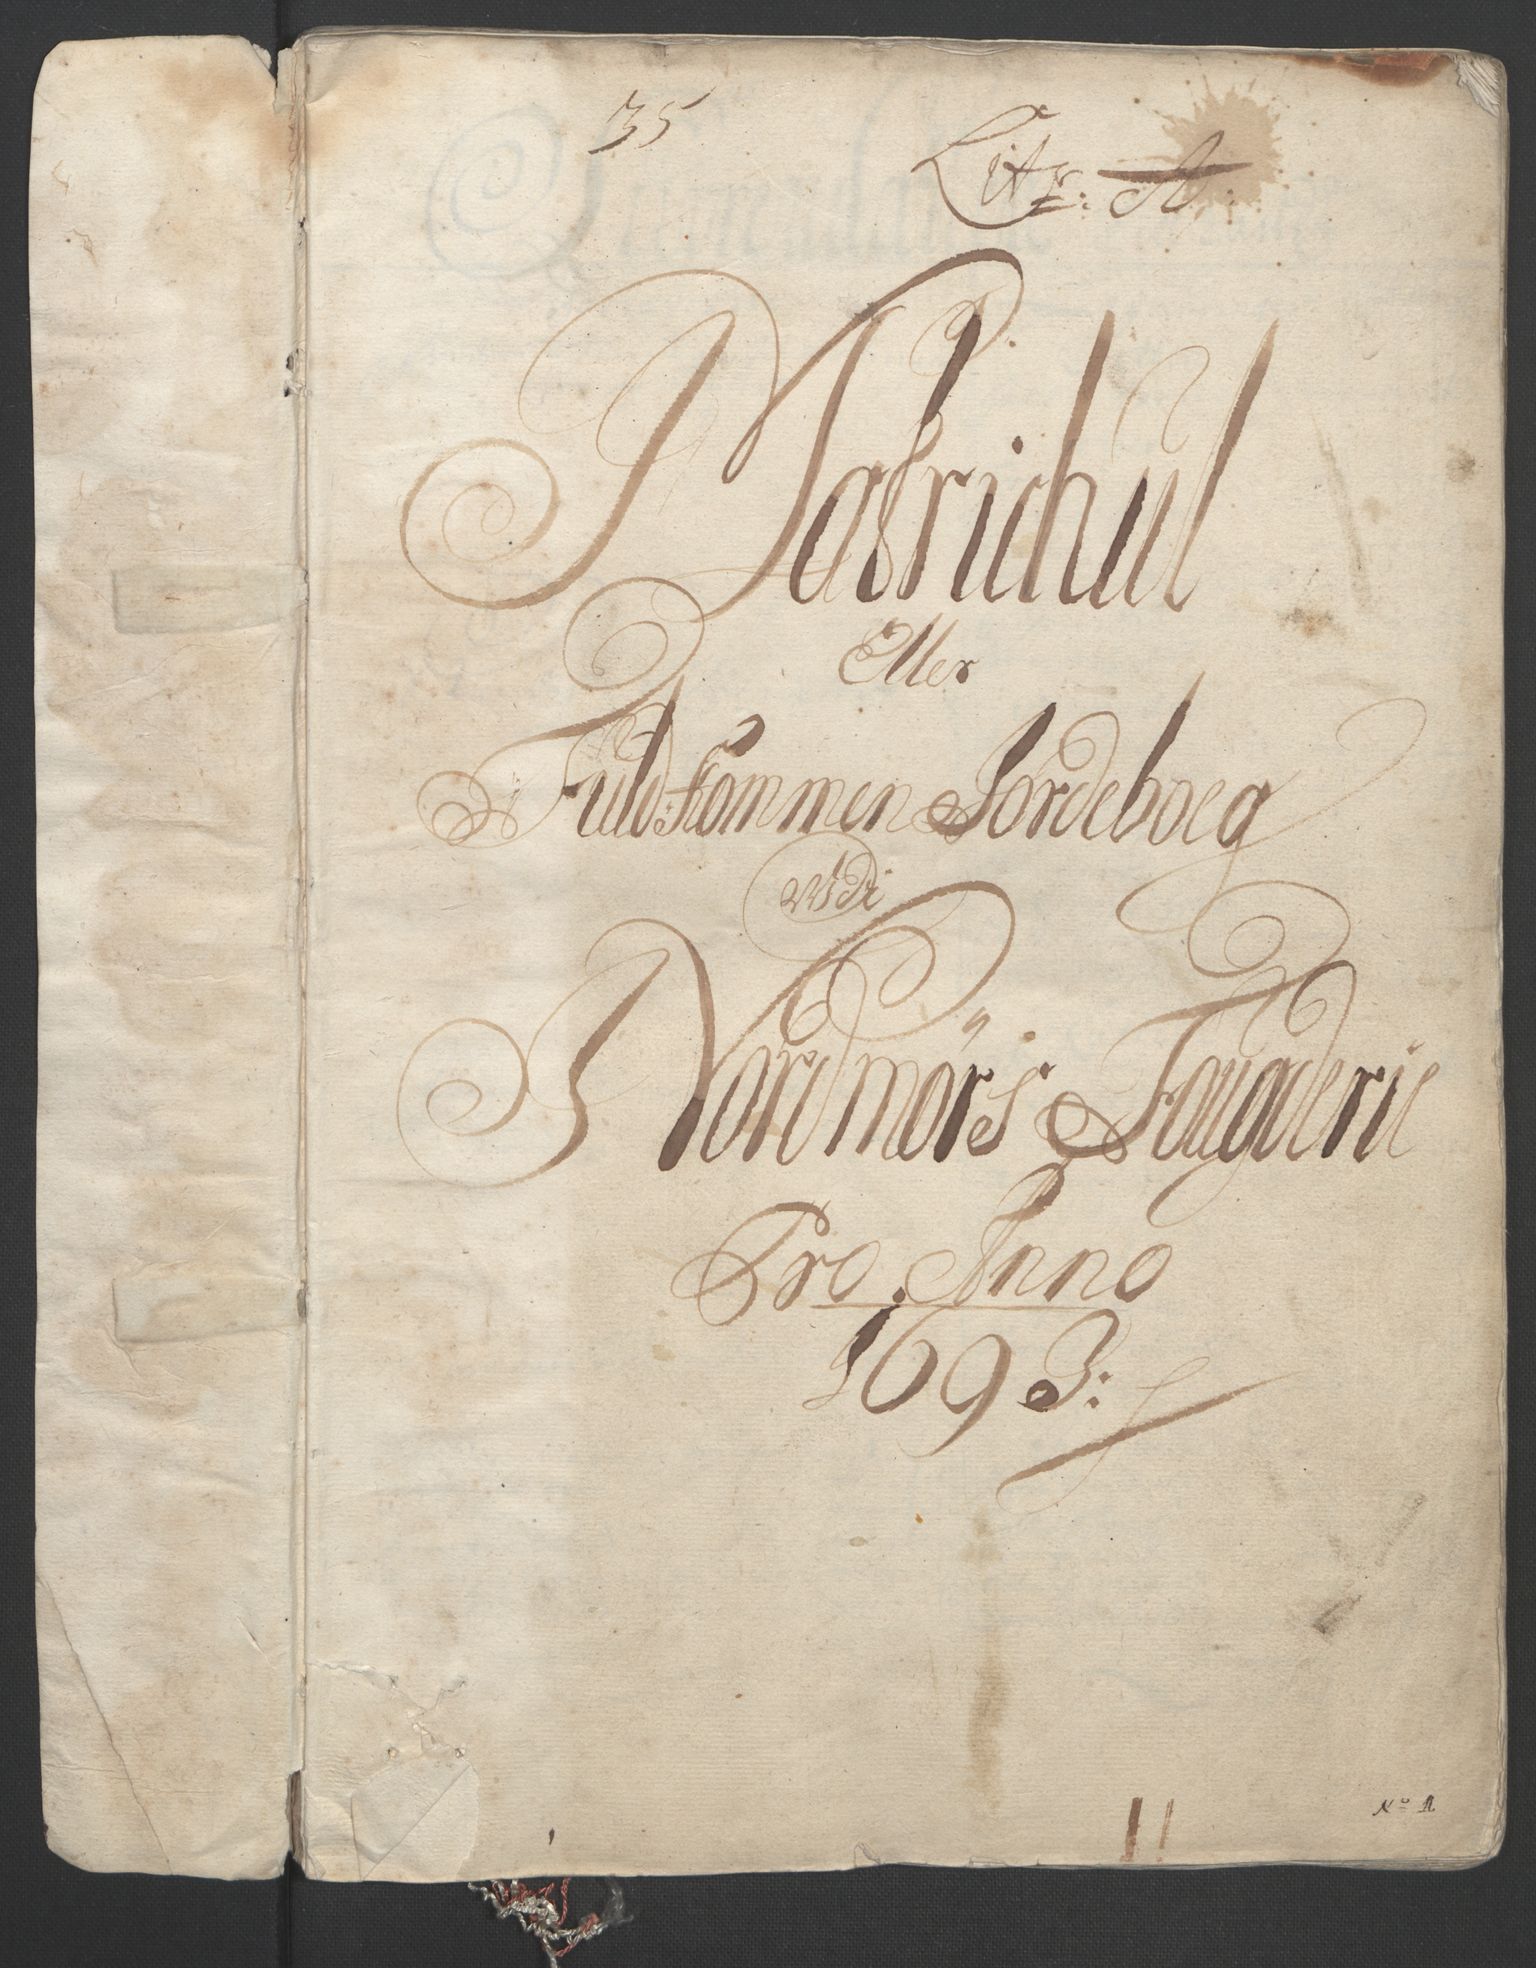 35
Litr: A.
Matrichul
Eller
Fuldkommen Jordeboeg
udi
Nordmørs Fougderie
Pro Anno
1693:
No 1
11